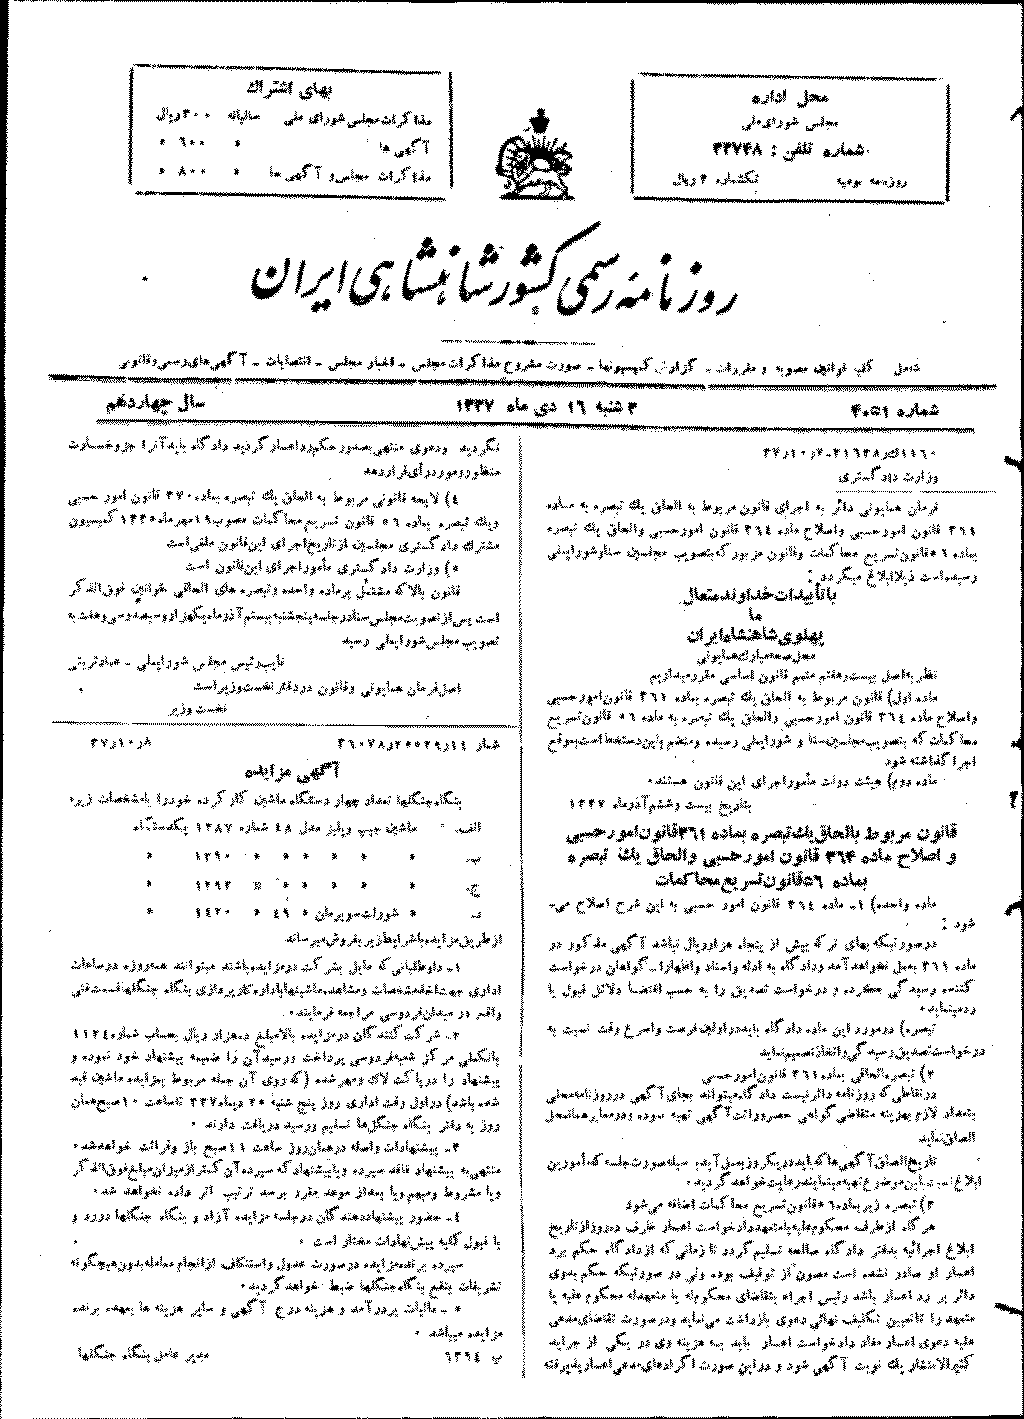 محل اداره
مجلس شورای ملی
شماره تلفن : ۳۲۷۴۸
روزنامه یومیه تکشماره ۲ ریال
بهای اشتراك
مذاکرات مجلس شورای ملی سالیانه ۳۰۰ ریال
آگهی ها » ۶۰۰ »
مذاکرات مجلس و آگهی ها » ۸۰۰ »
روزنامه رسمی کشور شاهنشاهی ایران
شامل کلیه قوانین مصوبه و مقررات ـ گزارش کمیسیونها ـ صورت مشروح مذاکرات مجلس ـ اخبار مجلس ـ انتصابات ـ آگهی‌های رسمی و قانونی
شماره ۴۰۵۱
۳ شنبه ۱۶ دی ماه ۱۳۳۷
سال چهاردهم
وزارت دادگستری
فرمان همایونی دائر به اجرای قانون مربوط به الحاق یك تبصره به ماده
۳۶۱ قانون امور حسبی واصلاح ماده ۳۶٤ قانون امورحسبی والحاق یك تبصره
بماده ۵۶ قانون تسریع محاکمات وقانون مزبور که بتصویب مجلسین سنا وشورایملی
رسیده است ذیلا ابلاغ میگردد :
با تأییدات خداوند متعال
ما
پهلوی شاهنشاه ایران
محل صحه مبارك همایونی
نظر به اصل بیست وهفتم متمم قانون اساسی مقرر میداریم
ماده اول) قانون مربوط به الحاق یك تبصره بماده ۳۶۱ قانون امورحسبی
واصلاح ماده ۳۶٤ قانون امورحسبی والحاق یك تبصره به ماده ۵۶ قانون تسریع
محاکمات که بتصویب مجلسین سنا و شورایملی رسیده ومنضم باین دستخط است بموقع
اجرا گذاشته شود
ماده دوم) هیئت دولت مأمور اجرای این قانون هستند.
بتاریخ بیست وششم آذرماه ۱۳۳۷
قانون مربوط بالحاق یك تبصره بماده ۳۶۱ قانون امور حسبی
و اصلاح ماده ۳۶۴ قانون امور حسبی والحاق یك تبصره
بماده ۵۶ قانون تسریع محاکمات
ماده واحده) ۱ـ ماده ۳۶٤ قانون امور حسبی به این شرح اصلاح می‌ـ
شود :
درصورتیکه بهای ترکه بیش از پنجاه هزارریال نباشد آگهی مذکور در
ماده ۳۶۱ بعمل نخواهد آمد ودادگاه به ادله واسناد واظهارات گواهان درخواست
کننده رسیدگی کرده و درخواست تصدیق را به حسب اقتضا دلائل قبول یا
رد مینماید.
تبصره) درمورد این ماده دادگاه باید دراولین فرصت واسرع وقت نسبت به
درخواست تصدیق رسیدگی واتخاذ تصمیم نماید
۲) تبصره الحاقی بماده ۳۶۱ قانون امورحسبی
درنقاطی که روزنامه دائر نیست دادگاه میتواند بجای آگهی درروزنامه محلی
بتعداد لازم بهزینه متقاضی گواهی حصر وراثت آگهی تهیه نموده ودرمعابر همان محل
الصاق نماید
تاریخ الصاق آگهی ها که باید در یکروز بعمل آید بوسیله صورت جلسه که مأمورین
ابلاغ نسبت باین موضوع تهیه مینمایند رعایت خواهد گردید.
۳) تبصره زیر بماده ۵۶ قانون تسریع محاکمات اضافه می‌شود
هرگاه ازطرف محکوم علیه یا متعهد دادخواست اعسار ظرف ده روز از تاریخ
ابلاغ اجرائیه بدفتر دادگاه صالحه تسلیم گردد تا زمانی که از دادگاه حکم برد
اعسار او صادر نشده است مصون از توقیف بوده ولی در صورتیکه حکم بدوی
دائر بر رد اعسار باشد رئیس اجراء بتقاضای محکوم‌له یا متعهدله محکوم علیه یا
متعهد را تا تعیین تکلیف نهائی دعوی بازداشت می‌نماید ودرصورت تقاضای مدعی
علیه دعوی اعسار مفاد دادخواست اعسار باید به هزینه وی در یکی از جراید
کثیرالانتشار یك نوبت آگهی شود و دراین صورت اگر ادعای مدعی اعسار پذیرفته
نگردید ودعوی منتهی بصدور حکم رد اعسار گردید دادگاه باید آنرا جزو خسارت
منظور ومورد رأی قراردهد
٤) لایحه قانونی مربوط به الحاق یك تبصره بماده ۳۷۰ قانون امور حسبی
ویك تبصره بماده ۵۶ قانون تسریع محاکمات مصوب ۱۹ مهرماه ۱۳۳۵ کمیسیون
مشترك دادگستری مجلسین ازتاریخ اجرای این قانون ملغی است
۵) وزارت دادگستری مأمور اجرای این قانون است
قانون بالا که مشتمل برماده واحده وتبصره های الحاقی قوانین فوق الذکر
است پس ازتصویب مجلس سنا درجلسه پنجشنبه بیستم آذرماه یکهزار وسیصد وسی وهفت به
تصویب مجلس شورایملی رسید
نایب رئیس مجلس شورایملی ـ عماد تربتی
اصل فرمان همایونی وقانون دردفتر نخست وزیر است
نخست وزیر
آگهی مزایده
بنگاه جنگلها تعداد چهار دستگاه ماشین کار کرده خودرا بامشخصات زیر
الف. ماشین جیپ ویلیز مدل ٤۸ شماره ۱۳۸۷ یکدستگاه
ب. » » » » » ۱۳۹۰ »
ج. » » » » » ۱۳۹۳ »
د. » شورلت سوبربان » ٤۹ » ۱٤۲۰ »
از طریق مزایده باشرایط زیر بفروش میرساند
۱ـ داوطلبانی که مایل بشرکت درمزایده باشند میتوانند همه‌روزه درساعات
اداری جهت اخذ مشخصات ومشاهده ماشینها باداره کارپردازی بنگاه جنگلها قسمت فنی
واقع در میدان فردوسی مراجعه فرمایند.
۲ـ شرکت کنندگان درمزایده بالا مبلغ ده هزار ریال بحساب شماره ۱۱۲٤
بانکملی مرکز شعبه فردوسی پرداخت ورسید آن را ضمیمه پیشنهاد خود نموده و
پیشنهاد را درپاکت لاك ومهر شده (که روی آن جمله مربوط بمزایده ماشین قید
شده باشد) دراول وقت اداری روز پنج شنبه ۲۵ دیماه ۳۳۷ تا ساعت ۱۰ صبح همان
روز به دفتر بنگاه جنگل‌ها تسلیم ورسید دریافت دارند .
۳ـ پیشنهادات واصله درهمان روز ساعت ۱۱ صبح باز وقرائت خواهد شد.
منتهی به پیشنهاد فاقد سپرده ویا پیشنهاد که سپرده آن کمتر از میزان مبلغ فوق الذکر
ویا مشروط ومبهم ویا بعد از موعد مقرر برسد ترتیب اثر داده نخواهد شد.
٤ـ حضور پیشنهاد دهندگان درجلسه مزایده آزاد و بنگاه جنگلها دررد و
یا قبول کلیه پیشنهادات مختار است .
سپرده برنده مزایده درصورت عدول واستنکاف از انجام معامله بدون هیچگونه
تشریفات بنفع بنگاه جنگلها ضبط خواهد گردید.
۵ ـ مالیات بردرآمد و هزینه درج آگهی و سایر هزینه ها بعهده برنده
مزایده میباشد .
پ ۱۳۶٤ مدیر عامل بنگاه جنگلها